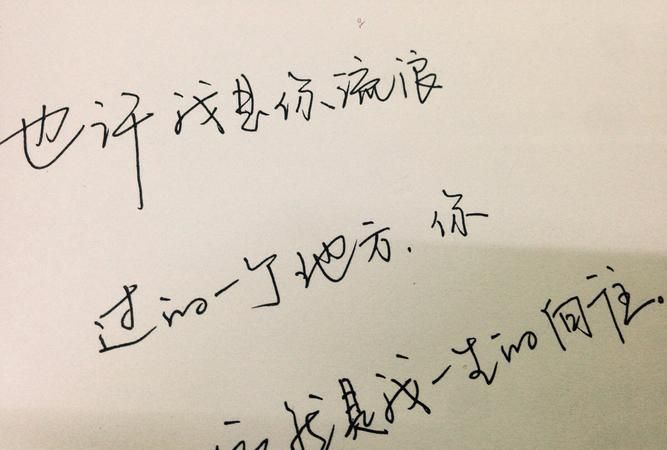 也许我是你流浪
过的一个地方.你
是我一生的向往.